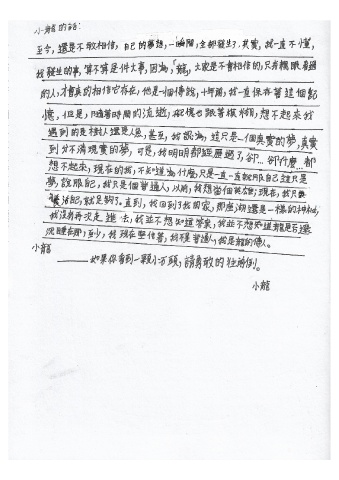 小龍的話:
至今,還是不敢相信,自己的夢想,一瞬間,全部發生了,其實,我一直不懂,
我發生的事,算不算是件大事,因為,「龍」大家是不會相信的,只有親眼看過
的人,才會真的相信它存在,他是一個傳說,十年前,我一直保存著這個記
憶,但是,隨著時間的流逝,記憶也跟著模糊,想不起來我
遇到的是樹人還是人居,甚至,我認為,這只是一個真實的夢,真實
到分不清現實的夢,可是,我明明都經歷過了,卻…卻什麼…都
想不起來,現在的我,不知道為什麼,只是一直一直說服自己這只是
夢,說服自己,我只是個普通人,以前,我想當個英雄;現在,我只要
養活自己,就足夠了。直到,我回到了我的家,那座湖還是一樣的神秘,
我沒有再次走進去,我並不想知道答案,我並不想知道龍是否還
沉睡在那,至少,我現在堅信著,我不是普通人,我是龍的傳人。
小龍
——如果你看到一顆小石頭,請勇敢的往前倒。
小龍